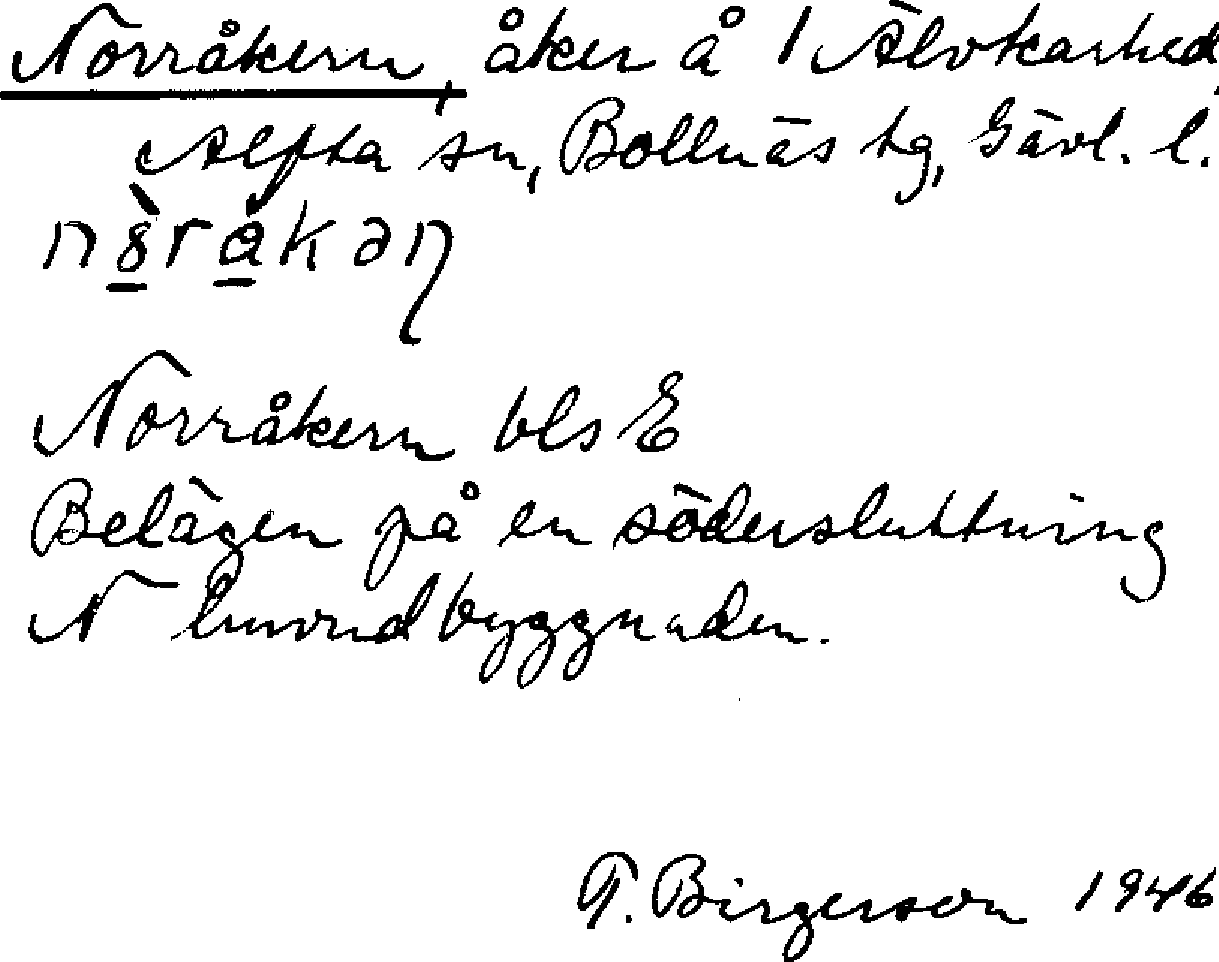 Norråkern, åker å 1 Älvkarhed,
Alfta sn, Bollnäs tg, Gävl. l.
Norråkern bls E
Belägen på en södersluttning
N huvudbyggnaden.
T. Birgerson 1946